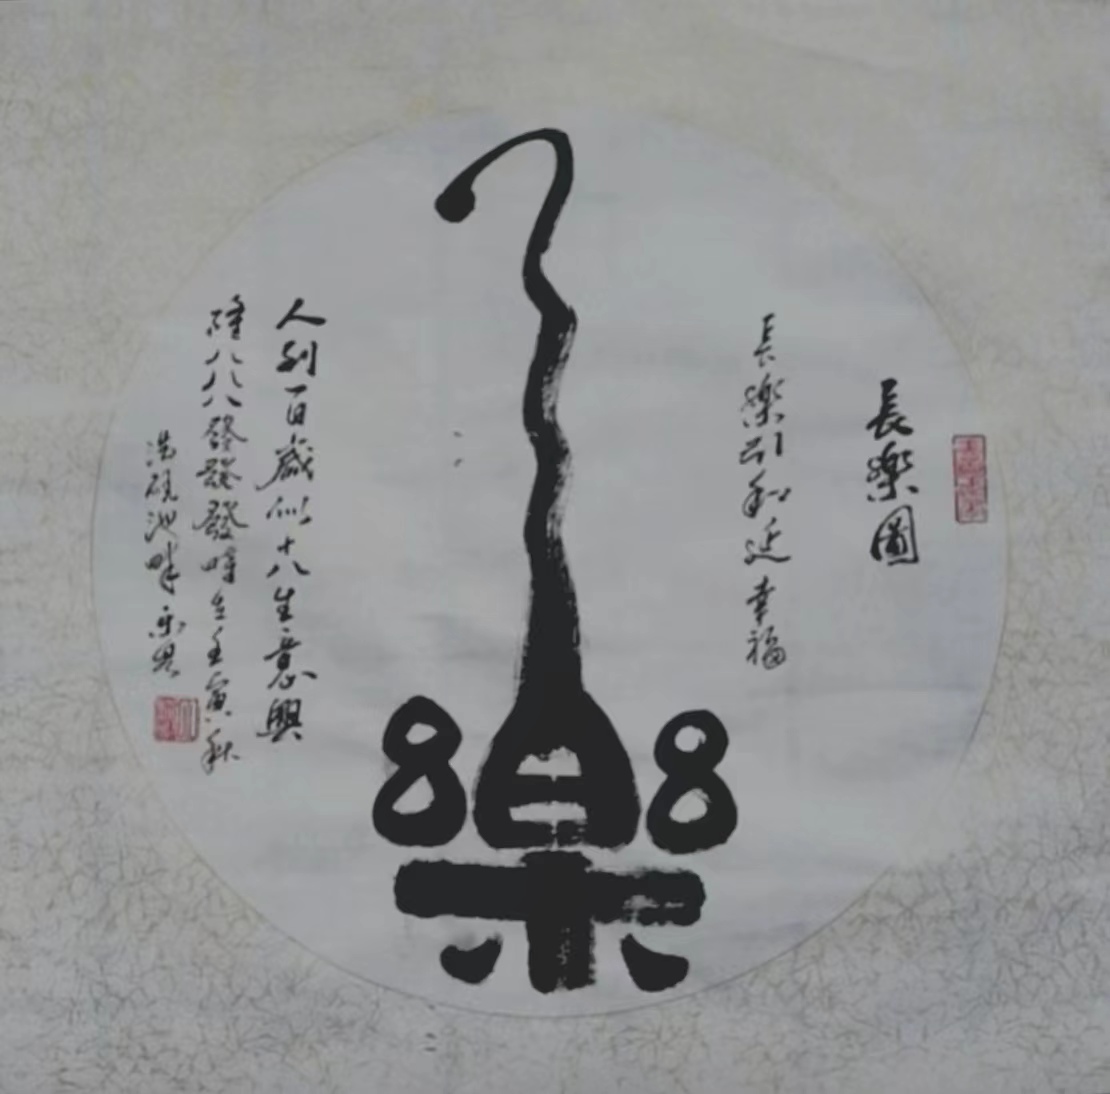 長樂圖
長樂引和延幸福
樂
人到百歲似十八生意興
隆八八八發發發時在壬寅秋
硯池畔